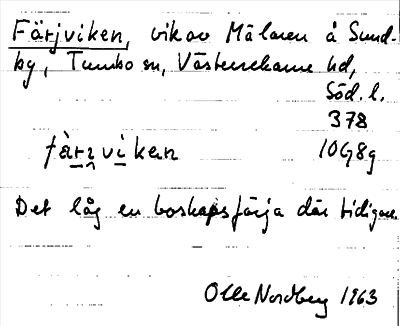 Färjviken, vik av Mälaren å Sund-
by, Tumbo sn, Västerrekarne hd,
Söd. l.
378
färviken 10G8g
Det låg en boskapsfärja där tidigare.
Olle Nordberg 1963